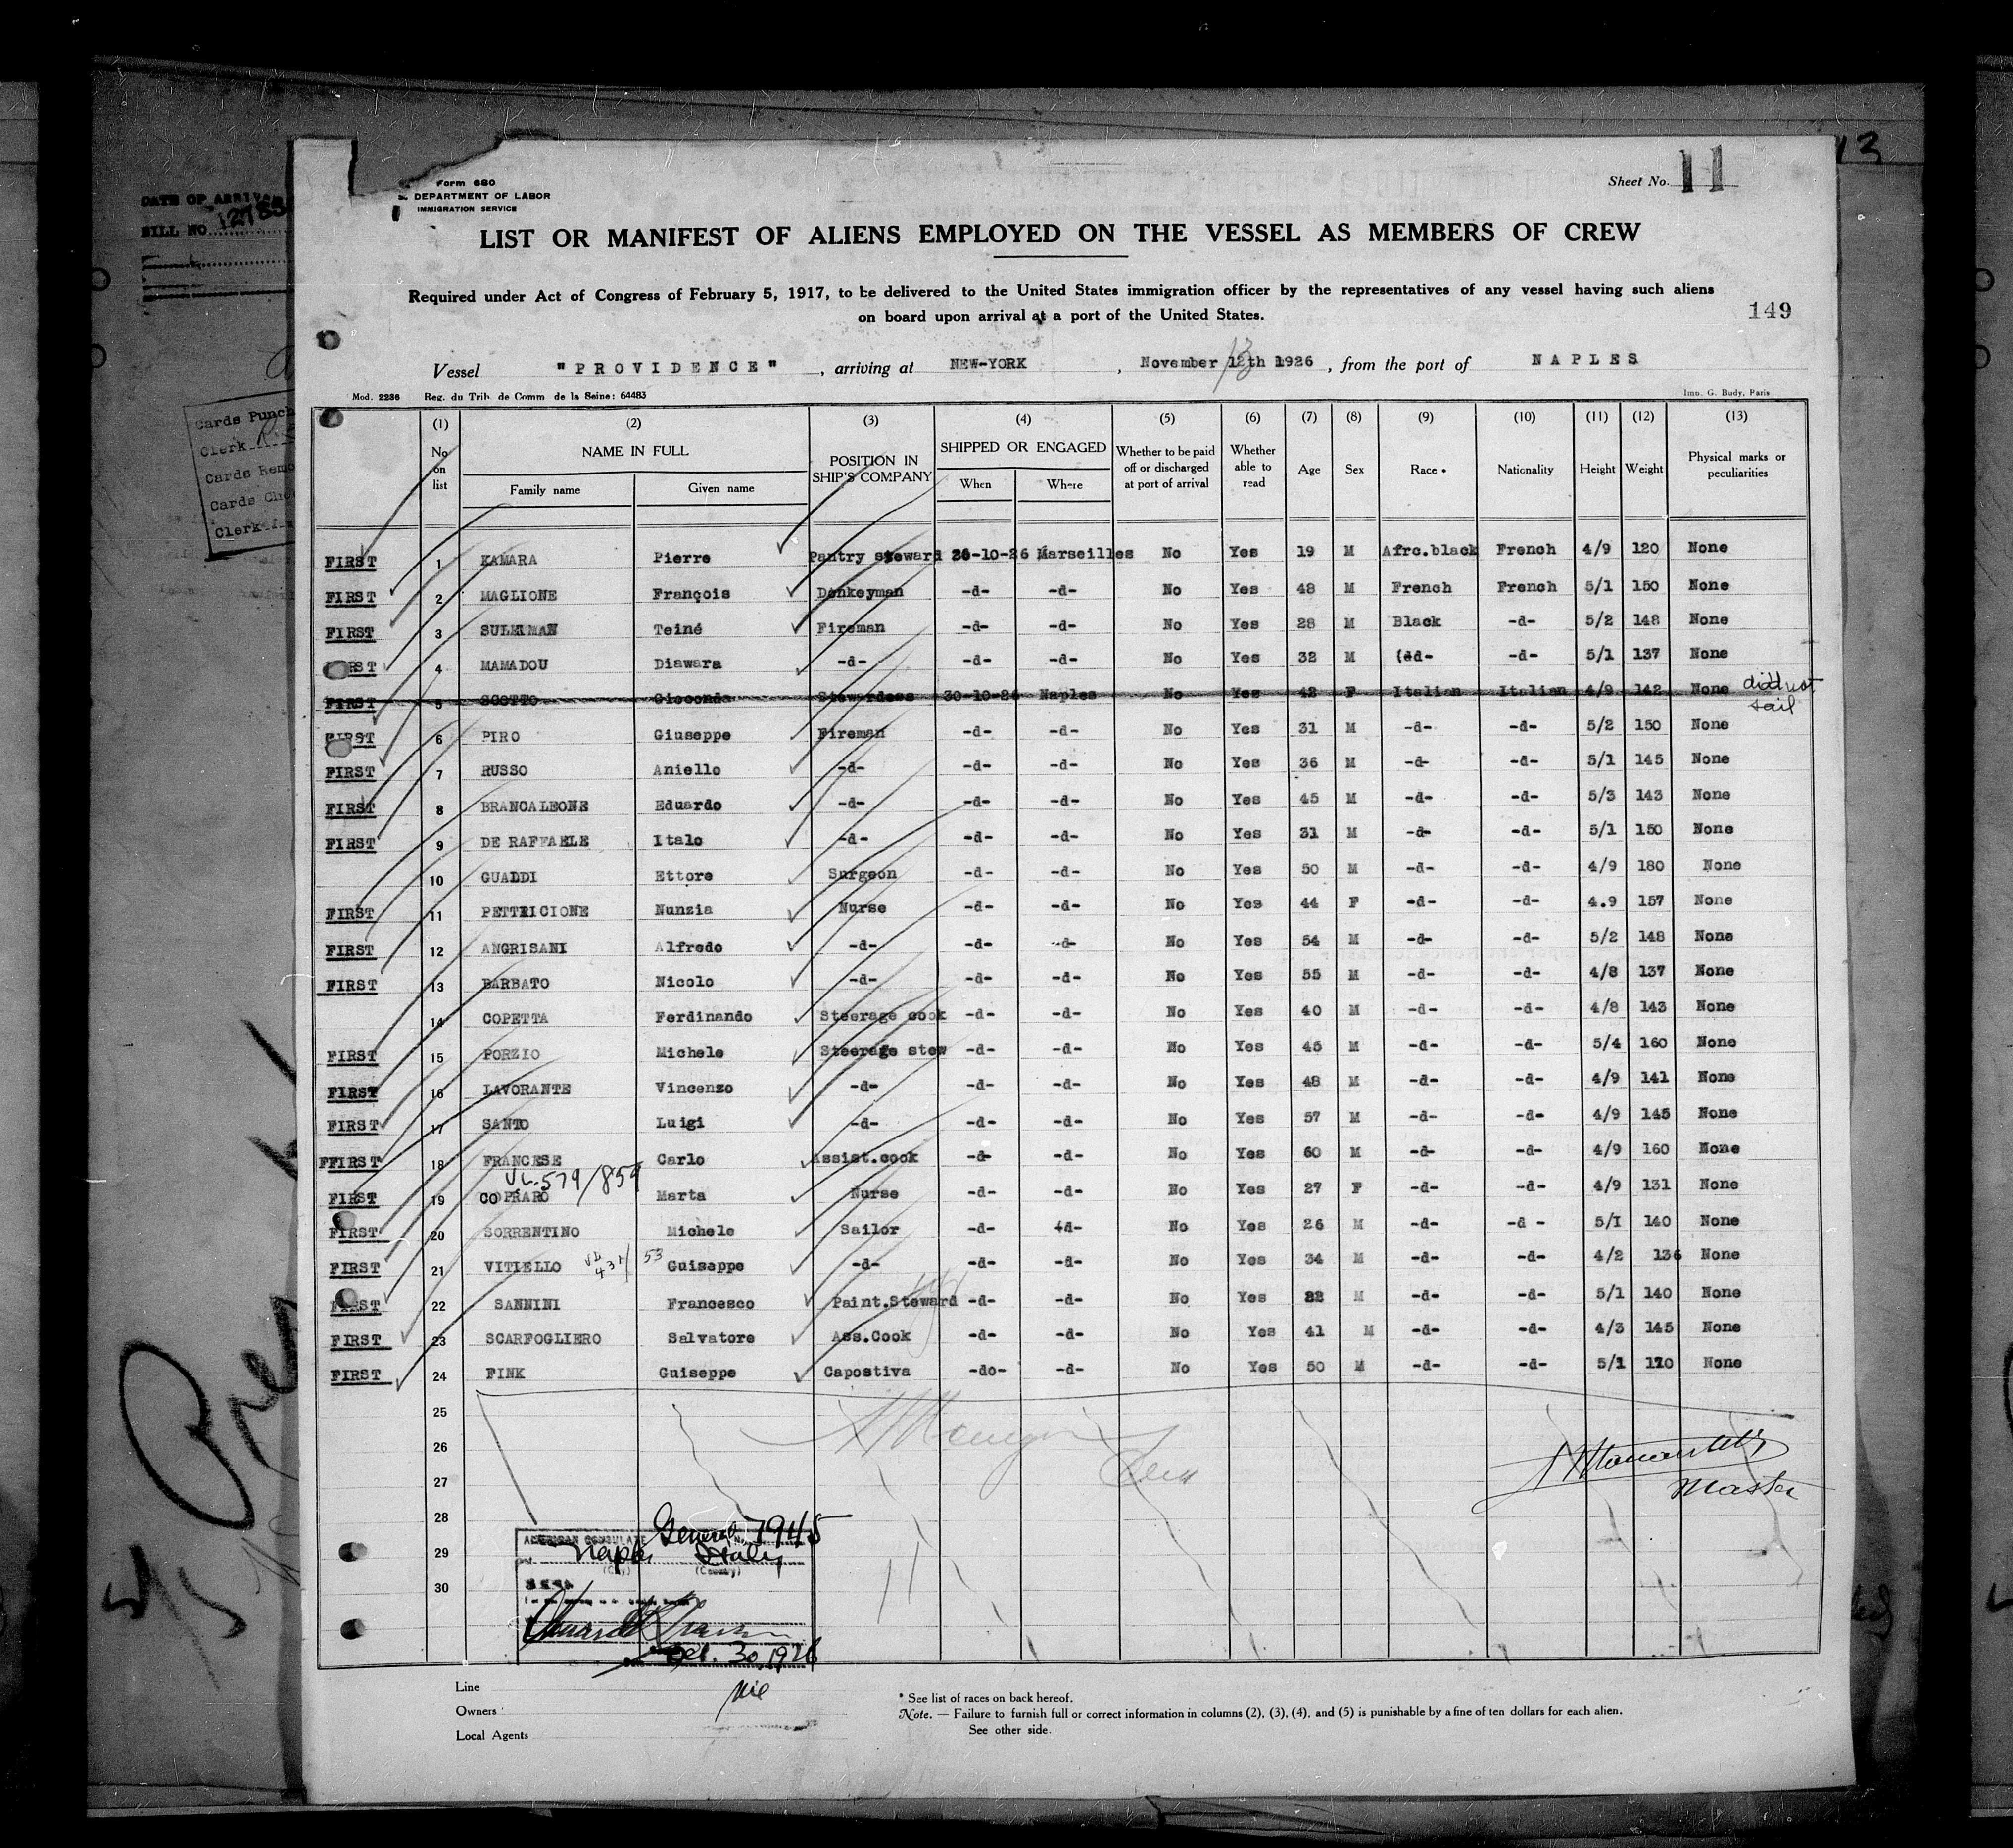 13
DATE OF ARRIVAL
BILL NO.
Cards Punch
Clerk
Cards Remo
Cards Chec
Clerk
Form 680
DEPARTMENT OF LABOR
IMMIGRATION SERVICE
Sheet No. 11
LIST OR MANIFEST OF ALIENS EMPLOYED ON THE VESSEL AS MEMBERS OF CREW
Required under Act of Congress of February 5, 1917, to be delivered to the United States immigration officer by the representatives of any vessel having such aliens
on board upon arrival at a port of the United States.
149
Vessel "PROVIDENCE", arriving at NEW-YORK, November 12th 1926, from the port of NAPLES
13
Mod. 2236 Reg. du Trib. de Comm de la Seine: 64483 Imp. G. Budy, Paris
(1) (2) (3) (4) (5) (6) (7) (8) (9) (10) (11) (12) (13)
No on list NAME IN FULL Family name Given name POSITION IN SHIP'S COMPANY SHIPPED OR ENGAGED When Where Whether to be paid off or discharged at port of arrival Whether able to read Age Sex Race * Nationality Height Weight Physical marks or peculiarities
FIRST 1 KAMARA Pierre Pantry steward 26-10-26 Marseilles No Yes 19 M Afrc.black French 4/9 120 None
FIRST 2 MAGLIONE François Donkeyman -d- -d- No Yes 48 M French French 5/1 150 None
FIRST 3 SULEIMAN Teiné Fireman -d- -d- No Yes 28 M Black -d- 5/2 148 None
FIRST 4 MAMADOU Diawara -d- -d- -d- No Yes 32 M (dd- -d- 5/1 137 None
FIRST 5 SCOTTO Gioconda Stewardess 30-10-26 Naples No Yes 42 F Italian Italian 4/9 142 None did not sail
FIRST 6 PIRO Giuseppe Fireman -d- -d- No Yes 31 M -d- -d- 5/2 150 None
FIRST 7 RUSSO Aniello -d- -d- -d- No Yes 36 M -d- -d- 5/1 145 None
FIRST 8 BRANCALEONE Eduardo -d- -d- -d- No Yes 45 M -d- -d- 5/3 143 None
FIRST 9 DE RAFFAELE Italo -d- -d- -d- No Yes 31 M -d- -d- 5/1 150 None
10 GUALDI Ettore Surgeon -d- -d- No Yes 50 M -d- -d- 4/9 180 None
FIRST 11 PETTRICIONE Nunzia Nurse -d- -d- No Yes 44 F -d- -d- 4.9 157 None
FIRST 12 ANGRISANI Alfredo -d- -d- -d- No Yes 54 M -d- -d- 5/2 148 None
FIRST 13 BARBATO Nicolo -d- -d- -d- No Yes 55 M -d- -d- 4/8 137 None
14 COPETTA Ferdinando Steerage cook -d- -d- No Yes 40 M -d- -d- 4/8 143 None
FIRST 15 PORZIO Michele Steerage stew -d- -d- No Yes 45 M -d- -d- 5/4 160 None
FIRST 16 LAVORANTE Vincenzo -d- -d- -d- No Yes 48 M -d- -d- 4/9 141 None
FIRST 17 SANTO Luigi -d- -d- -d- No Yes 57 M -d- -d- 4/9 145 None
FFIRST 18 FRANCESE Carlo Assist.cook -d- -d- No Yes 60 M -d- -d- 4/9 160 None
VL.579/859
FIRST 19 COPRARO Marta Nurse -d- -d- No Yes 27 F -d- -d- 4/9 131 None
FIRST 20 SORRENTINO Michele Sailor -d- -d- No Yes 26 M -d- -d- 5/I 140 None
FIRST 21 VITIELLO 53 Guiseppe -d- -d- -d- No Yes 34 M -d- -d- 4/2 136 None
FIRST 22 SANNINI Francesco Paint.Steward -d- -d- No Yes 32 M -d- -d- 5/1 140 None
FIRST 23 SCARFOGLIERO Salvatore Ass.Cook -d- -d- No Yes 41 M -d- -d- 4/3 145 None
FIRST 24 FINK Guiseppe Capostiva -do- -d- No Yes 50 M -d- -d- 5/1 170 None
25
26
27
Master
28
General 1945
AMERICAN CONSULATE
29 Naples Italy
(City) (Country)
30
Oct. 30, 1926
11
Line
Owners
Local Agents
* See list of races on back hereof.
Note. — Failure to furnish full or correct information in columns (2), (3), (4), and (5) is punishable by a fine of ten dollars for each alien.
See other side.